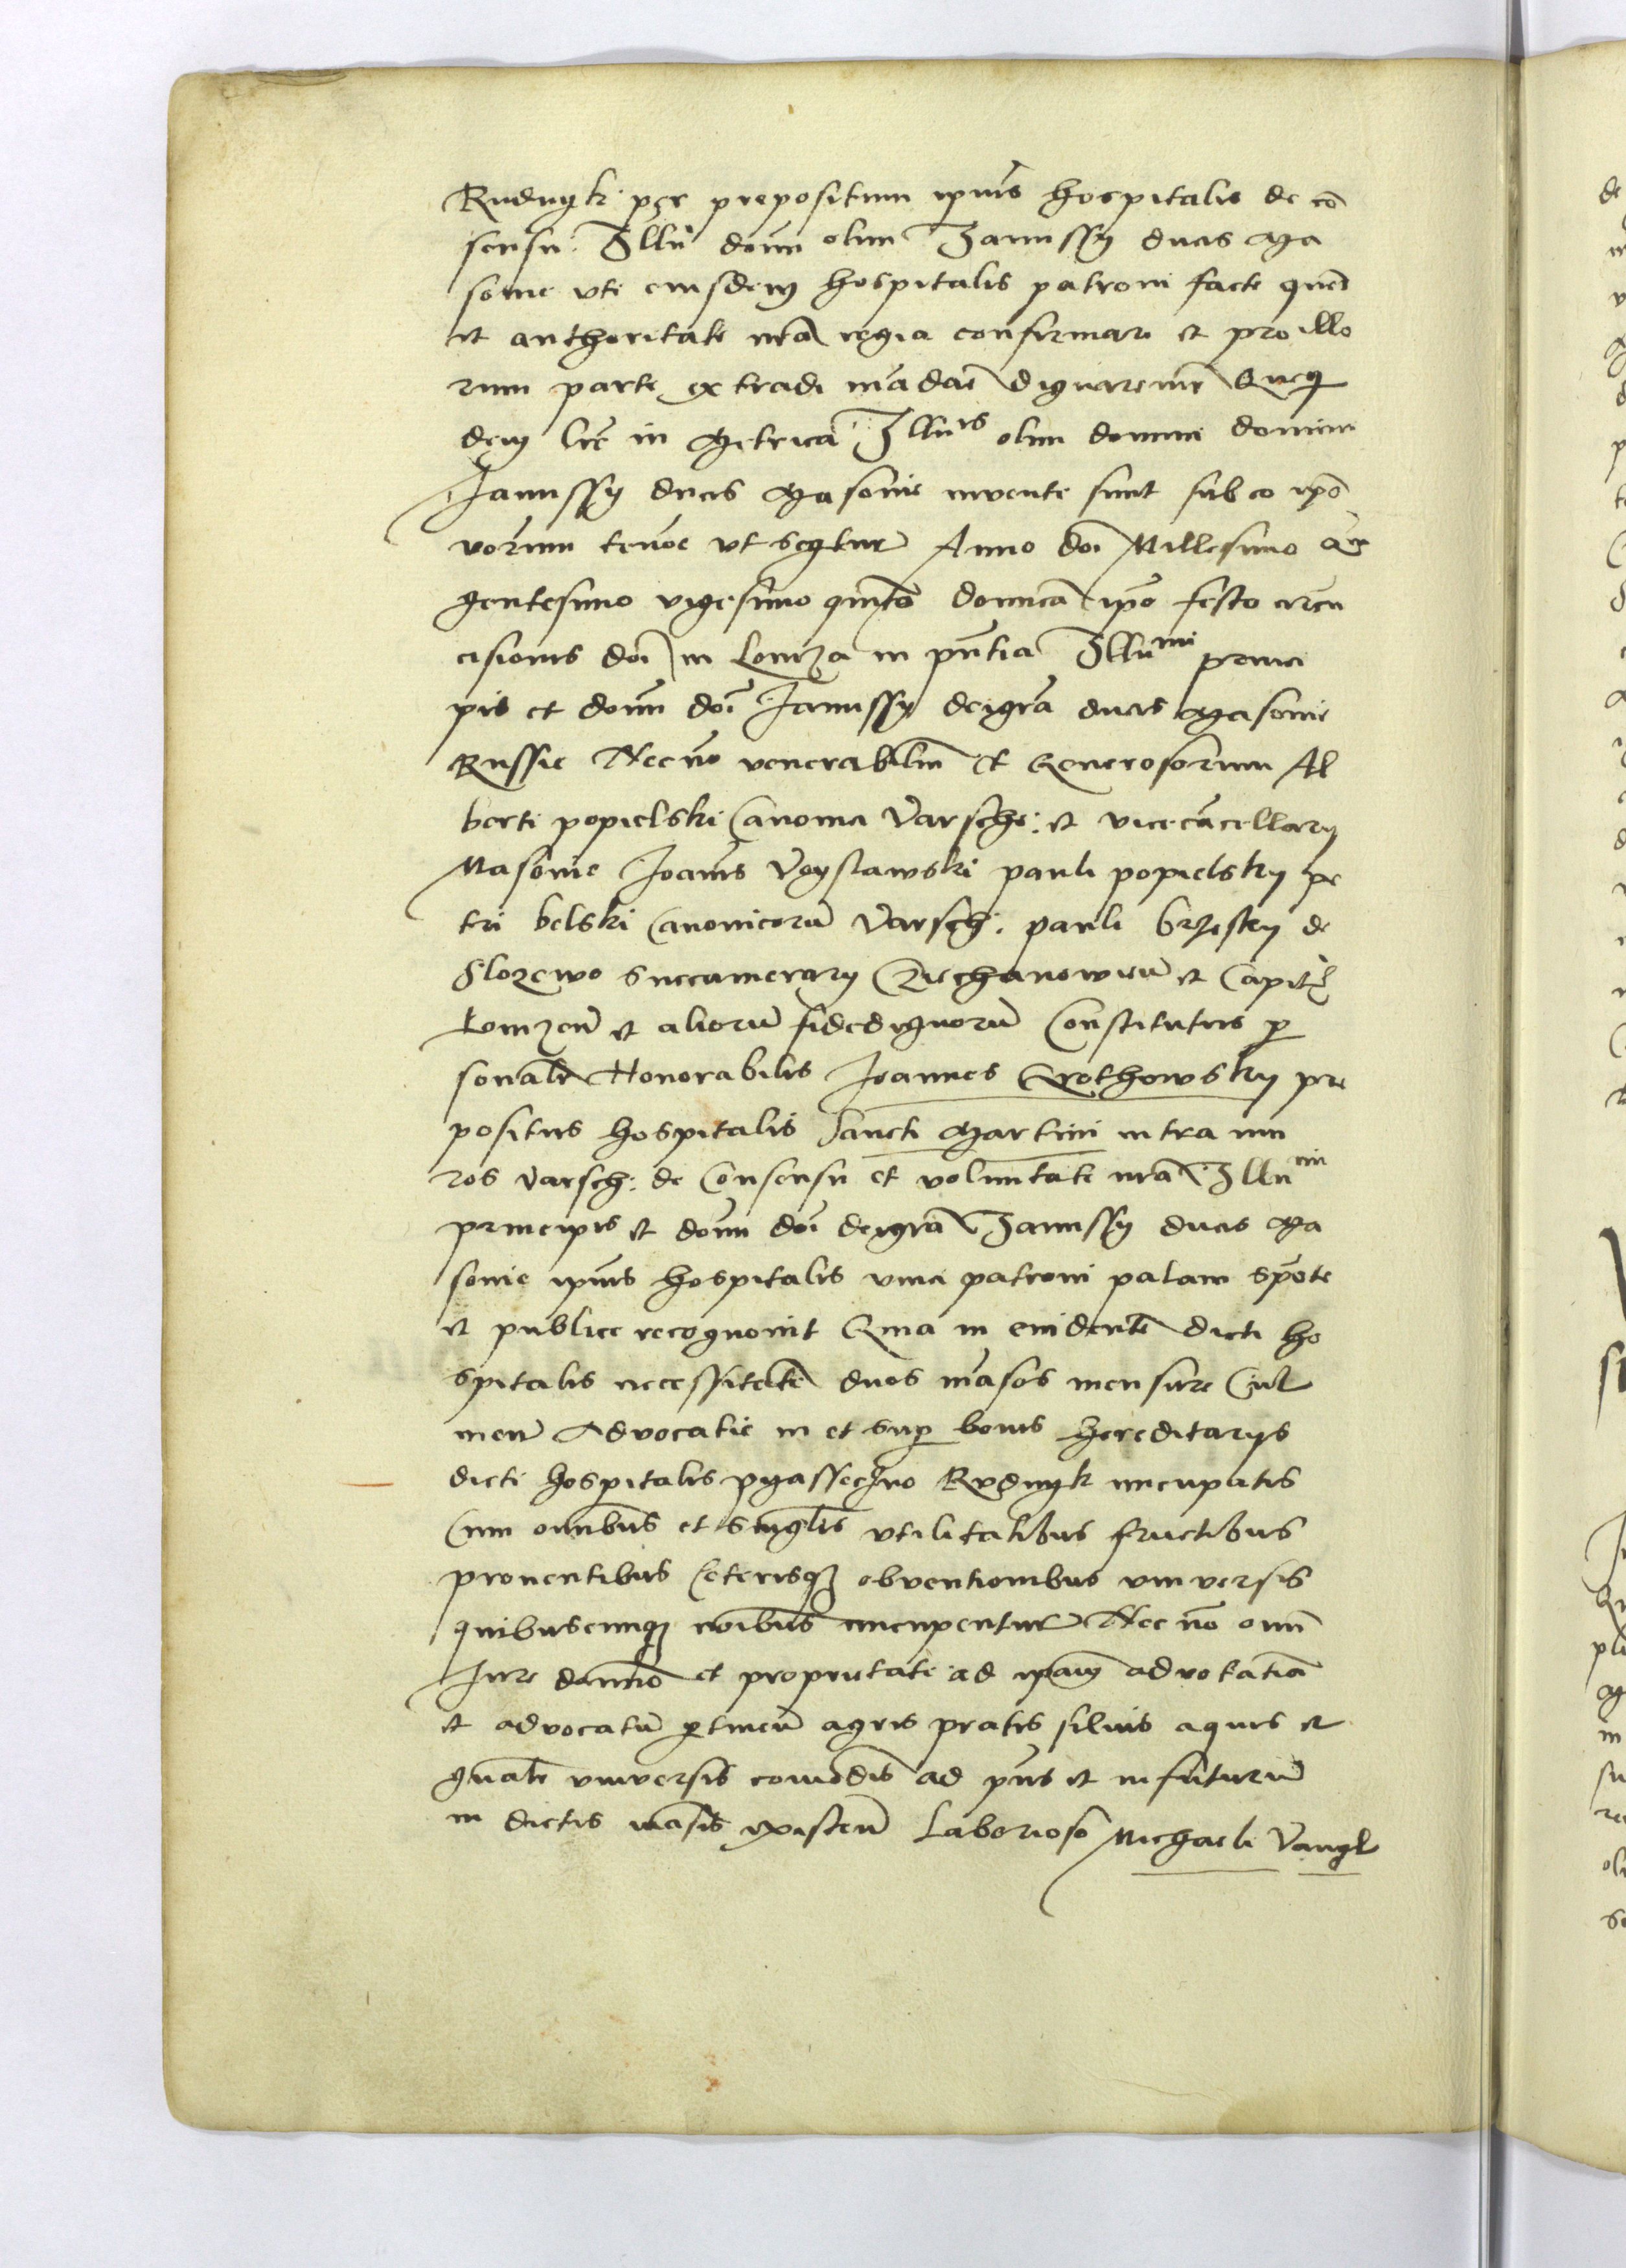 Rudnyk per prepositum ipius hospitalis de cō
sensu Illu domi olim Janussy ducis Ma
sovie uti eiusdem hospitalis patroni facte quē
et authoritate nrā regia confirmari et pro illo
rum parte extradi mādare dignaremur Que q
dem lre in Metrica Illuris olim domini domini
Janussy ducis Masovie invente sunt sub eo ipo
vorum tenore ut seqtur Anno doī Millesimo Qu
gentesimo vigesimo quīto domīca ipō festo circu
cisionis doī in Lomza in pntia Illumi princi
pis et domi doī Janussy dei gra ducis Masovie
Russie Necno venerabiliū et Generosorum Al
berti popielski Canonici Varsche: et vicecācellary
Masovie Joānis Voyslawski pauli popielsky pe
tri belski Canonicorū Varsch: pauli brzesky de
Slozewo Succamerary Cziechanowieñ et Capit
Lomzeñ et aliorū fidedignorū Constitutus p
sonalr Honorabilis Joannes Grothowsky pre
positus hospitalis Sancti Martini intra mu
ros Varsch: de Consensu et voluntate nrā Illumi
principis et domi doī dei gra Janussy ducis Ma
sovie ipius hospitalis unici patroni palam spōte
et publice recognovit Quia in evidentē dicti ho
spitalis necessitatē duos māsos mensure Cul
meñ Advocatie in et sup bonis hereditarys
dicti hospitalis pyassechno Rudnyk nuncupatis
Cum omnibus et singlis utilitatibus fructibus
proventibus Ceterisq obventionibus universis
quibuscunq noibus nuncupentur Nec nō omī
Jure dominio et proprietate ad ipam advocatiā
et advocatū ptineñ agris pratis silvis aquis et
gnalr universis comodis ad pns et in futurū
in dictis māsis existeñ Laborioso Michaeli Vangl